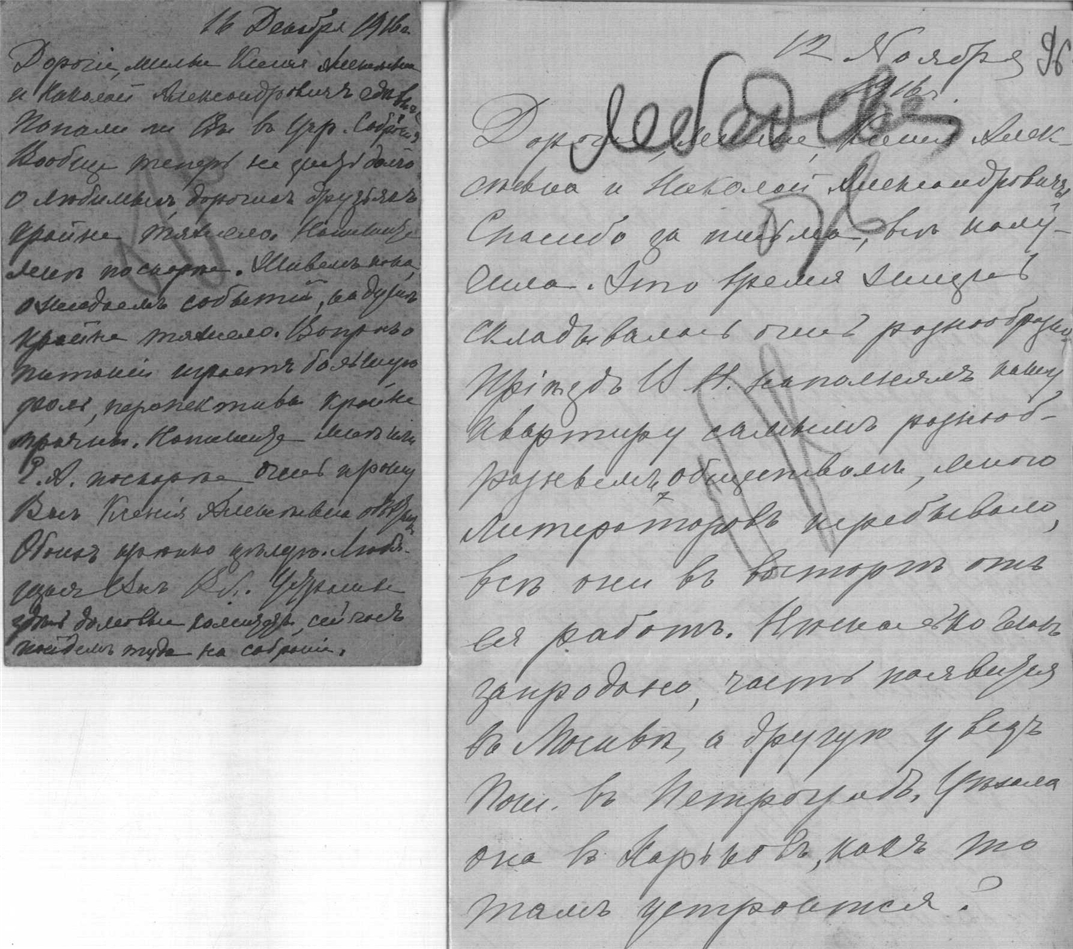 16 Декабря 1916 г.
Дорогіе, милые Ксенія Алексѣевна
и Николай Александровичъ
Попали ли Вы въ Учр. Собраніе
Вообще теперь не знать долго
о любимыхъ дорогихъ друзьяхъ
крайне тяжело. Напишите
мнѣ поскорѣе. Живемъ пока,
ожидаемъ событій, на душѣ
крайне тяжело. Вопросъ о
питаніи играетъ большую
роль, перспектива крайне
мрачна. Напишите мнѣ
Е. А. поскорѣе очень прошу
Васъ Ксенія Алексѣевна
Обоихъ крѣпко цѣлую. Любя-
щая Васъ
здѣсь сейчасъ
пойдемъ туда на собраніе.
96
12 Ноября
1916 г.
Лебедева
Дорогіе, милые, Ксенія Алек-
сѣевна и Николай Александровичъ,
Спасибо за письма, всѣ полу-
чила. Это время жизнь
складывалась очень разнообразно,
Пріѣздъ наполнялъ нашу
квартиру самымъ разнооб-
разнымъ обществомъ, много
литераторовъ перебывало,
всѣ они въ восторгѣ отъ
ея работъ. Нѣсколько
запродано, часть появится
въ Москвѣ, а другую увезъ
Пош. въ Петроградъ. Уѣхала
она въ Харьковъ, какъ то
тамъ устроится?